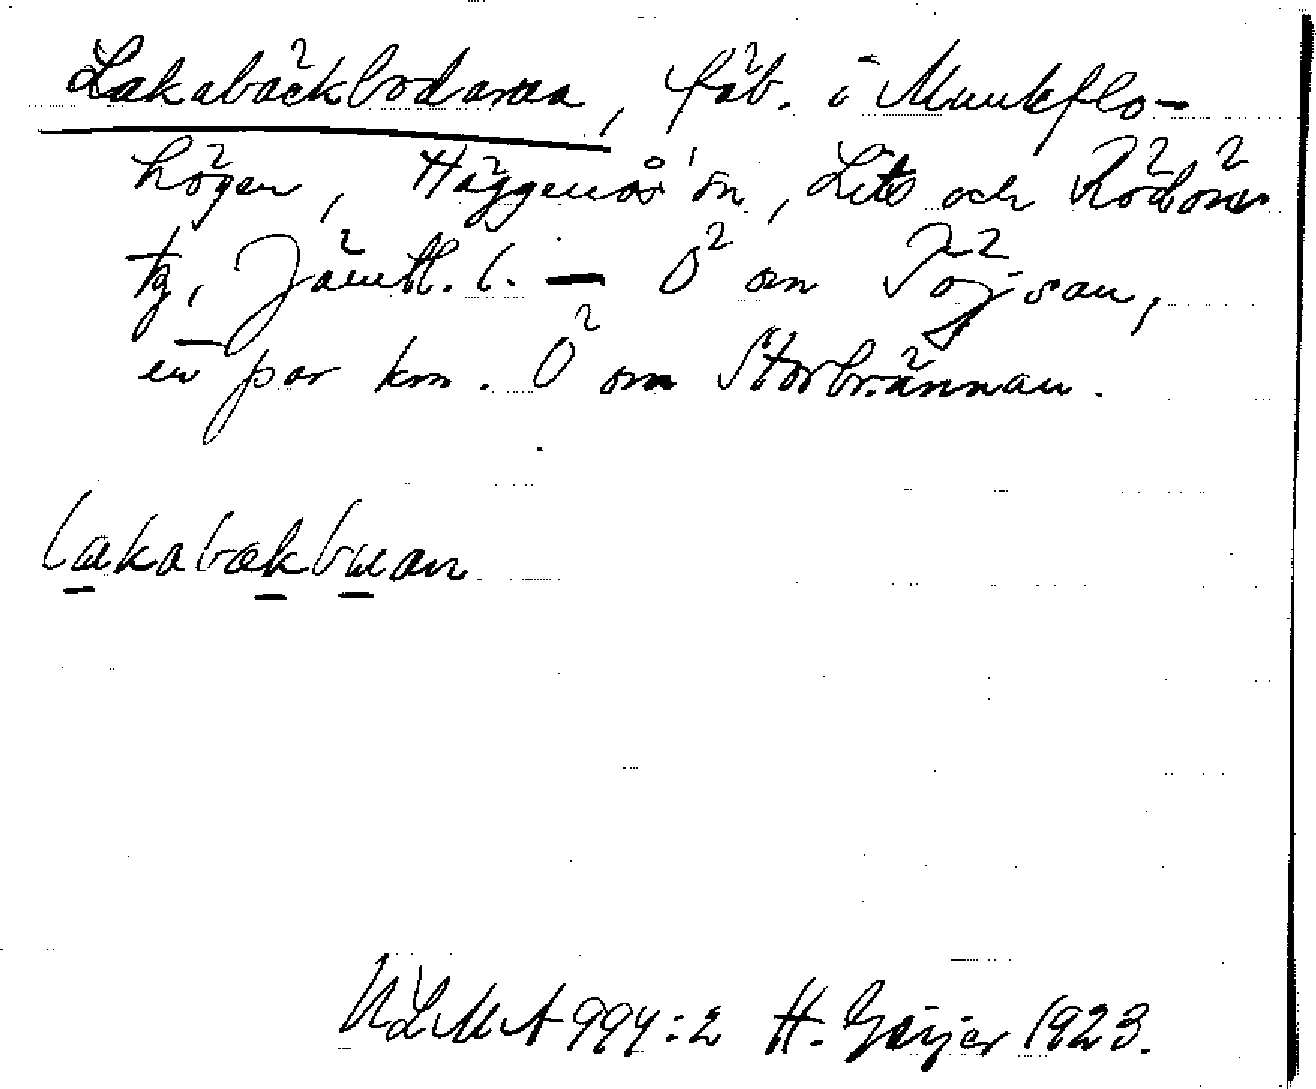 Lakabäckbodarna, fäb. i Munkflo-
högen, Häggenås' sn, Lits och Rödöns
tg, Jämtl. l. — Ö om Töjsan,
en par km. Ö om Storbrännan.
lakabækbuan
ULMA 994:2 H. Geijer 1923.